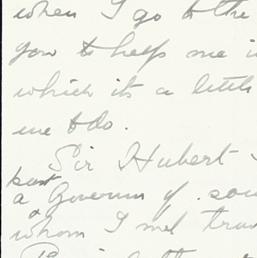 when I go to the
you to help me i
which it's a little
me to do.
Sir Hubert
past
a Governor of. sou
&
whom I met trav